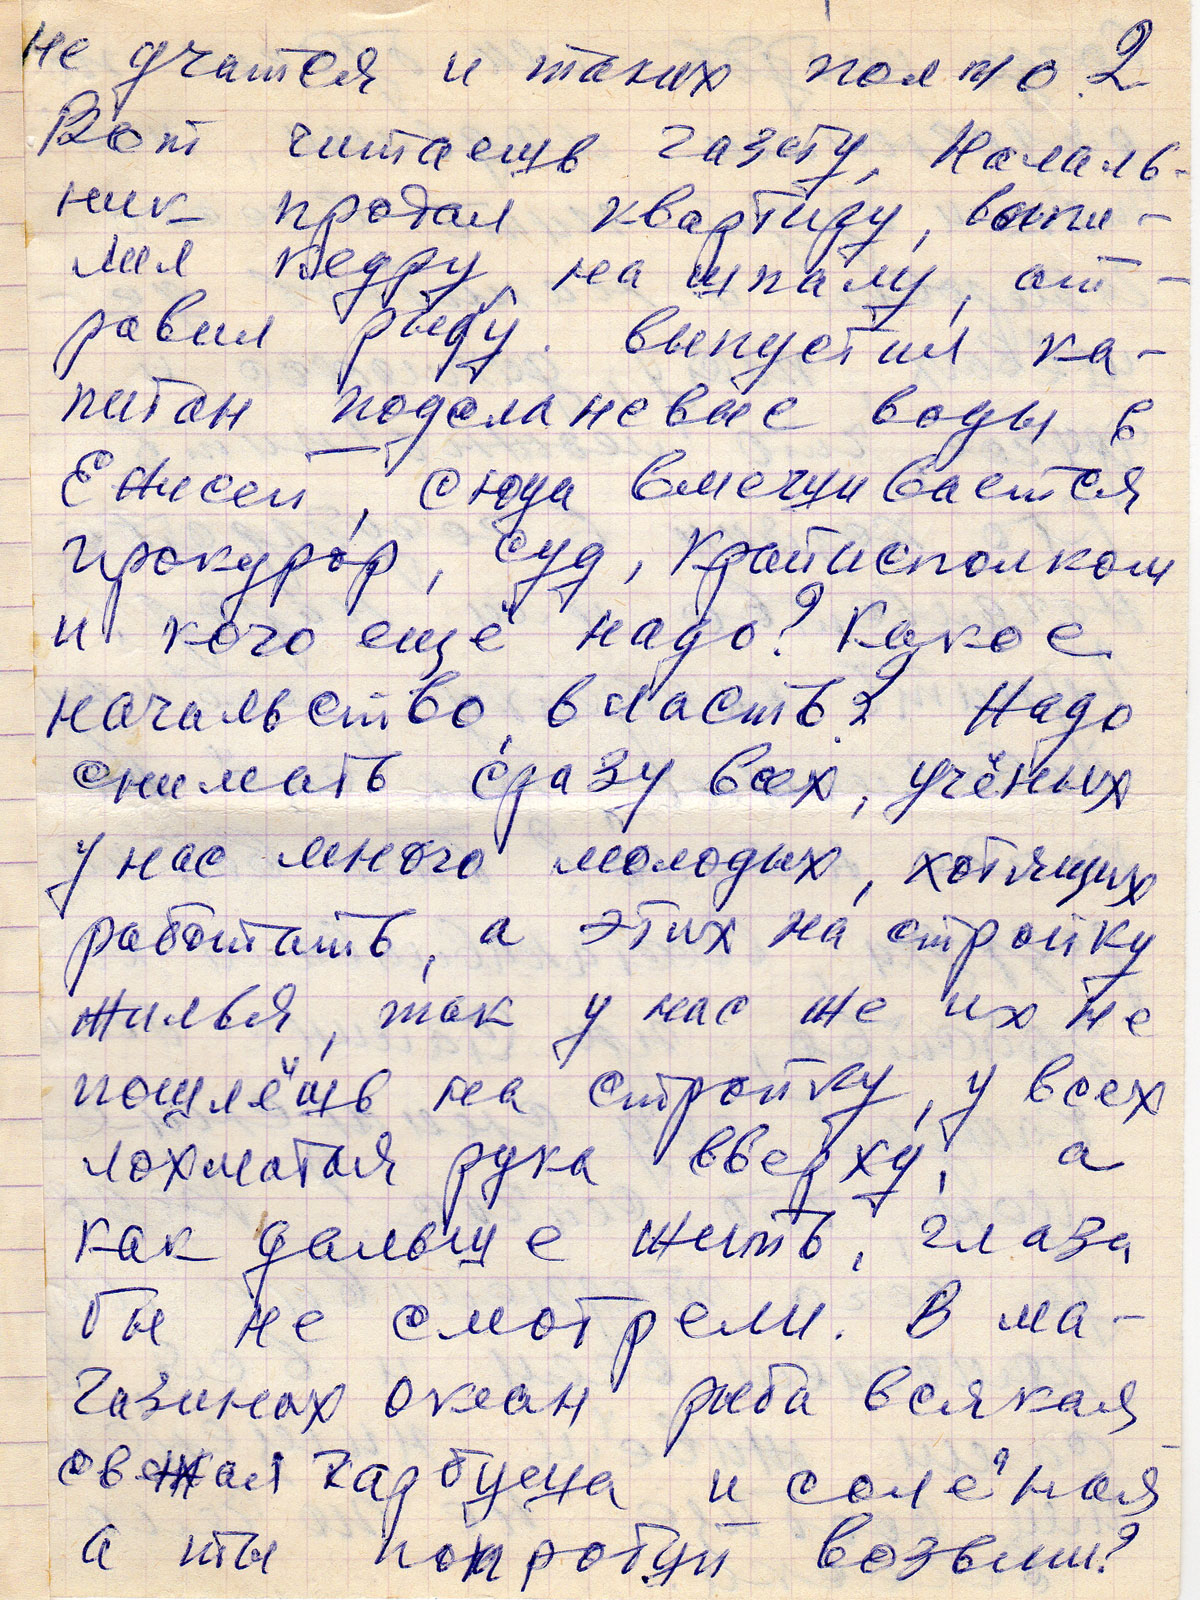 не учатся и таких полно?
Вот читаешь газету, Началь-
ник продал квартиру, выпи-
лил кедру на шпалу, от-
равил рыбу. выпустил ка-
питан подсланевые воды в
Енисей, сюда вмешивается
прокурор, суд, Крайисполком
и кого ещё надо? Какое
начальство, власть? Надо
снимать сразу всех, учёных
у нас много молодых, хотящих
работать, а этих на стройку
жилья, так у нас же их не
пошлёшь на стройку, у всех
лохматая рука вверху, а
как дальше жить, глаза
бы не смотрели. В ма-
газинах океан рыба всякая
свежая гарбуша и солёная
а ты попробуй возьми?